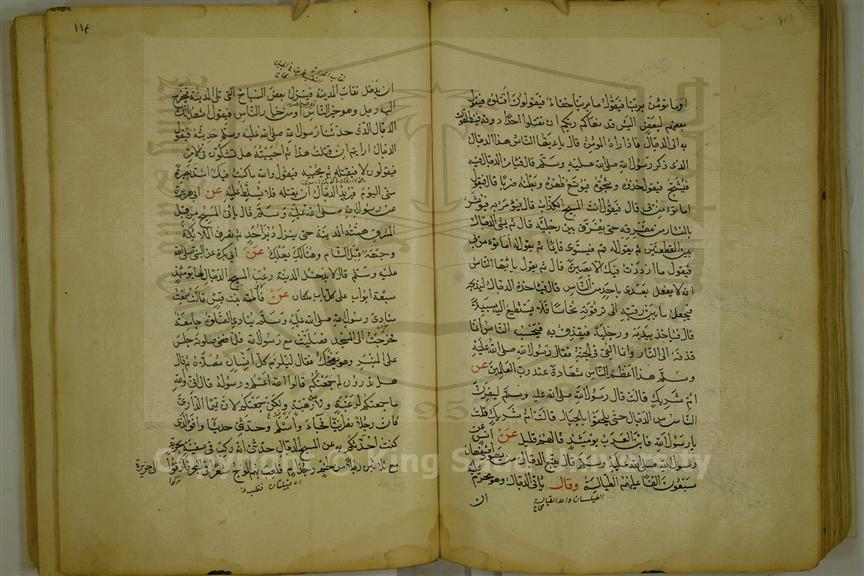 أوما تؤمن بربنا فيقول ما بربنا خفاء فيقولون اقتلوه فيقول
بعضهم لبعض أليس قد نهاكم ربكم ان تقتلوا احدا دونه فينطلقون
به الى الدجال فاذا رآه المؤمن قال يا ايها الناس هذا الدجال
الذي ذكر رسول الله صلى الله عليه وسلم قال فيأمر الدجال به
فيشبح فيقول خذوه وشجوه فيوسع ظهره وبطنه ضربا قال فيقول
اما تؤمن بي قال فيقول انت المسيح الكذاب قال فيؤمر به فيؤشر
بالمنشار من مفرقه حتى يفرق بين رجليه قال ثم يمشي الدجال
بين القطعتين ثم يقول له قم فيستوي قائما ثم يقول له اتؤمن بي
فيقول ما ازددت فيك الا بصيرة قال ثم يقول يا ايها الناس
انه لا يفعل بعدي باحد من الناس قال فيأخذه الدجال ليذبحه
فيجعل ما بين رقبته الى ترقوته نحاسا فلا يستطيع اليه سبيلا
قال فيأخذ بيديه ورجليه فيقذف به فيحسب الناس انما
قذفه الى النار وانما القي في الجنة فقال رسول الله صلى الله عليه
وسلم هذا اعظم الناس شهادة عند رب العالمين عن
ام شريك قالت قال رسول الله صلى الله عليه وسلم ليفرن
الناس من الدجال حتى يلحقوا بالجبال قالت ام شريك قلت
يا رسول الله فاين العرب يومئذ قال هم قليل عن انس عن
رسول الله صلى الله عليه وسلم قال يتبع الدجال من يهود اصفهان
سبعون الفا عليهم الطيالسة وقال يأتي الدجال وهو محرم
الطيلسان واحد الطيالسة صحاح
ان
١١٤
ان يدخل نقاب المدينة فينزل بعض السباخ التي تلي المدينة فيخرج
اليه رجل وهو خير الناس او من خيار الناس فيقول اشهد انك
الدجال الذي حدثنا رسول الله صلى الله عليه وسلم حديثه فيقول
الدجال ارايتم ان قتلت هذا ثم احييته هل تشكون في الامر
فيقولون لا فيقتله ثم يحييه فيقول والله ما كنت فيك اشد بصيرة
مني اليوم فيريد الدجال ان يقتله فلا يسلط عليه عن ابي هريرة
عن رسول الله صلى الله عليه وسلم قال يأتي المسيح من قبل
المشرق همته المدينة حتى ينزل دبر احد ثم تصرف الملائكة
وجهه قبل الشام وهنالك يهلك عن ابي بكرة عن النبي صلى الله
عليه وسلم قال لا يدخل المدينة رعب المسيح الدجال لها يومئذ
سبعة ابواب على كل باب ملكان عن فاطمة بنت قيس قالت سمعت
منادي رسول الله صلى الله عليه وسلم ينادي الصلوة جامعة
فخرجت الى المسجد فصليت مع رسول الله فلما قضى صلوته جلس
على المنبر وهو يضحك فقال ليلزم كل انسان مصلاه ثم قال
هل تدرون لم جمعتكم قالوا الله اعلم ورسوله قال اني والله
ما جمعتكم لرغبة ولا لرهبة ولكن جمعتكم لان تميما الداري
كان رجلا نصرانيا فجاء واسلم وحدثني حديثا وافق الذي
كنت احدثكم به عن المسيح الدجال حدثني انه ركب في سفينة بحرية
مع ثلاثين رجلا من لخم وجذام فلعب بهم الموج شهرا في البحر فارفؤا الى جزيرة
Copyright © King Saud University